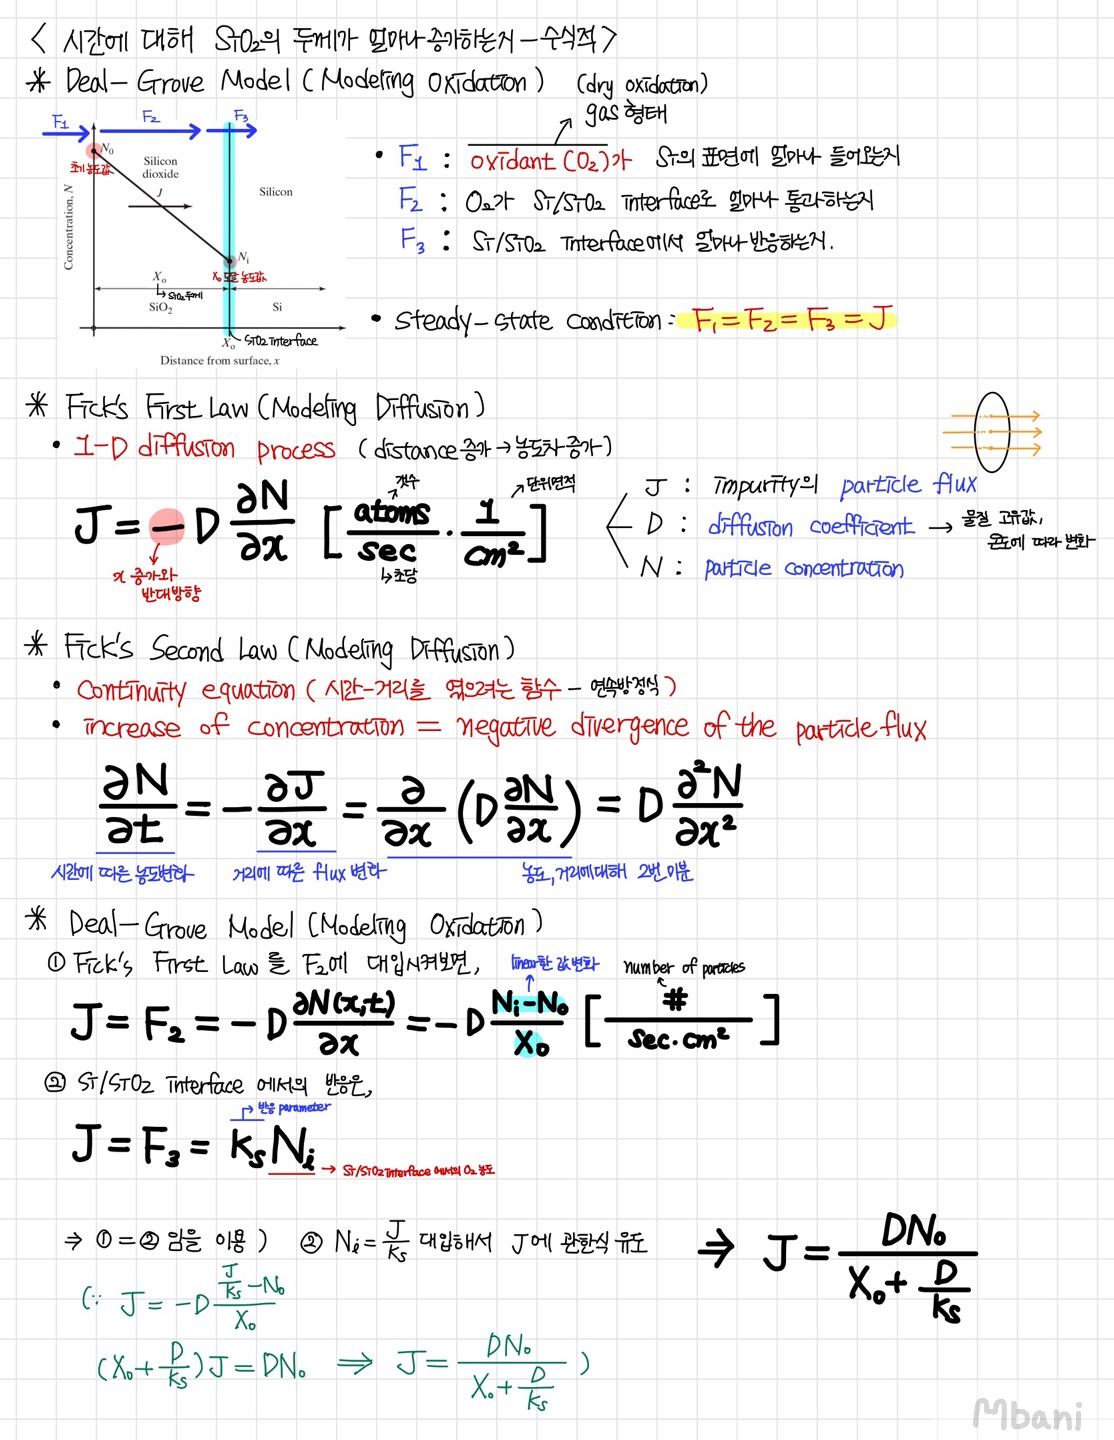 < 시간에 대해 SiO₂의 두께가 얼마나 증가하는지 - 수식적 >
* Deal-Grove Model (Modeling Oxidation) (dry oxidation)
gas 형태
F₁ F₂ F₃
N₀
초기 농도값
Silicon dioxide
J
Silicon
Concentration, N
Nᵢ
X₀ 도달 농도값
X₀
↳ SiO₂ 두께
SiO₂
Si
X₀
SiO₂ Interface
Distance from surface, x
• F₁ : oxidant (O₂)가 Si의 표면에 얼마나 들어오는지
F₂ : O₂가 Si/SiO₂ interface로 얼마나 통과하는지
F₃ : Si/SiO₂ interface에서 얼마나 반응하는지.
• steady-state condition : F₁ = F₂ = F₃ = J
* Fick's First Law (Modeling Diffusion)
• 1-D diffusion process (distance 증가 → 농도차 증가)
J = - D ∂N/∂x [atoms/sec · 1/cm²]
갯수
단위면적
↳ 초당
x 증가와
반대방향
J : impurity의 particle flux
D : diffusion coefficient → 물질 고유값,
온도에 따라 변화
N : particle concentration
* Fick's Second Law (Modeling Diffusion)
• Continuity equation ( 시간-거리를 엮으려는 함수 - 연속방정식 )
• increase of concentration = negative divergence of the particle flux
∂N/∂t = - ∂J/∂x = ∂/∂x (D ∂N/∂x) = D ∂²N/∂x²
시간에 따른 농도변화 거리에 따른 flux 변화 농도, 거리에 대해 2번 미분
* Deal-Grove Model (Modeling Oxidation)
① Fick's First Law를 F₂에 대입시켜보면,
linear한 값 변화
number of particles
J = F₂ = - D ∂N(x,t)/∂x = - D (Nᵢ-N₀)/X₀ [#/sec·cm²]
② Si/SiO₂ interface 에서의 반응은,
↱ 반응 parameter
J = F₃ = ksNᵢ → Si/SiO₂ Interface 에서의 O₂ 농도
⇒ ① = ② 임을 이용 ) ② Nᵢ = J/ks 대입해서 J에 관한식 유도 ⇒ J = DN₀/(X₀ + D/ks)
(∵ J = - D (J/ks - N₀)/X₀
(X₀ + D/ks) J = DN₀ ⇒ J = DN₀/(X₀ + D/ks) )
Mbani